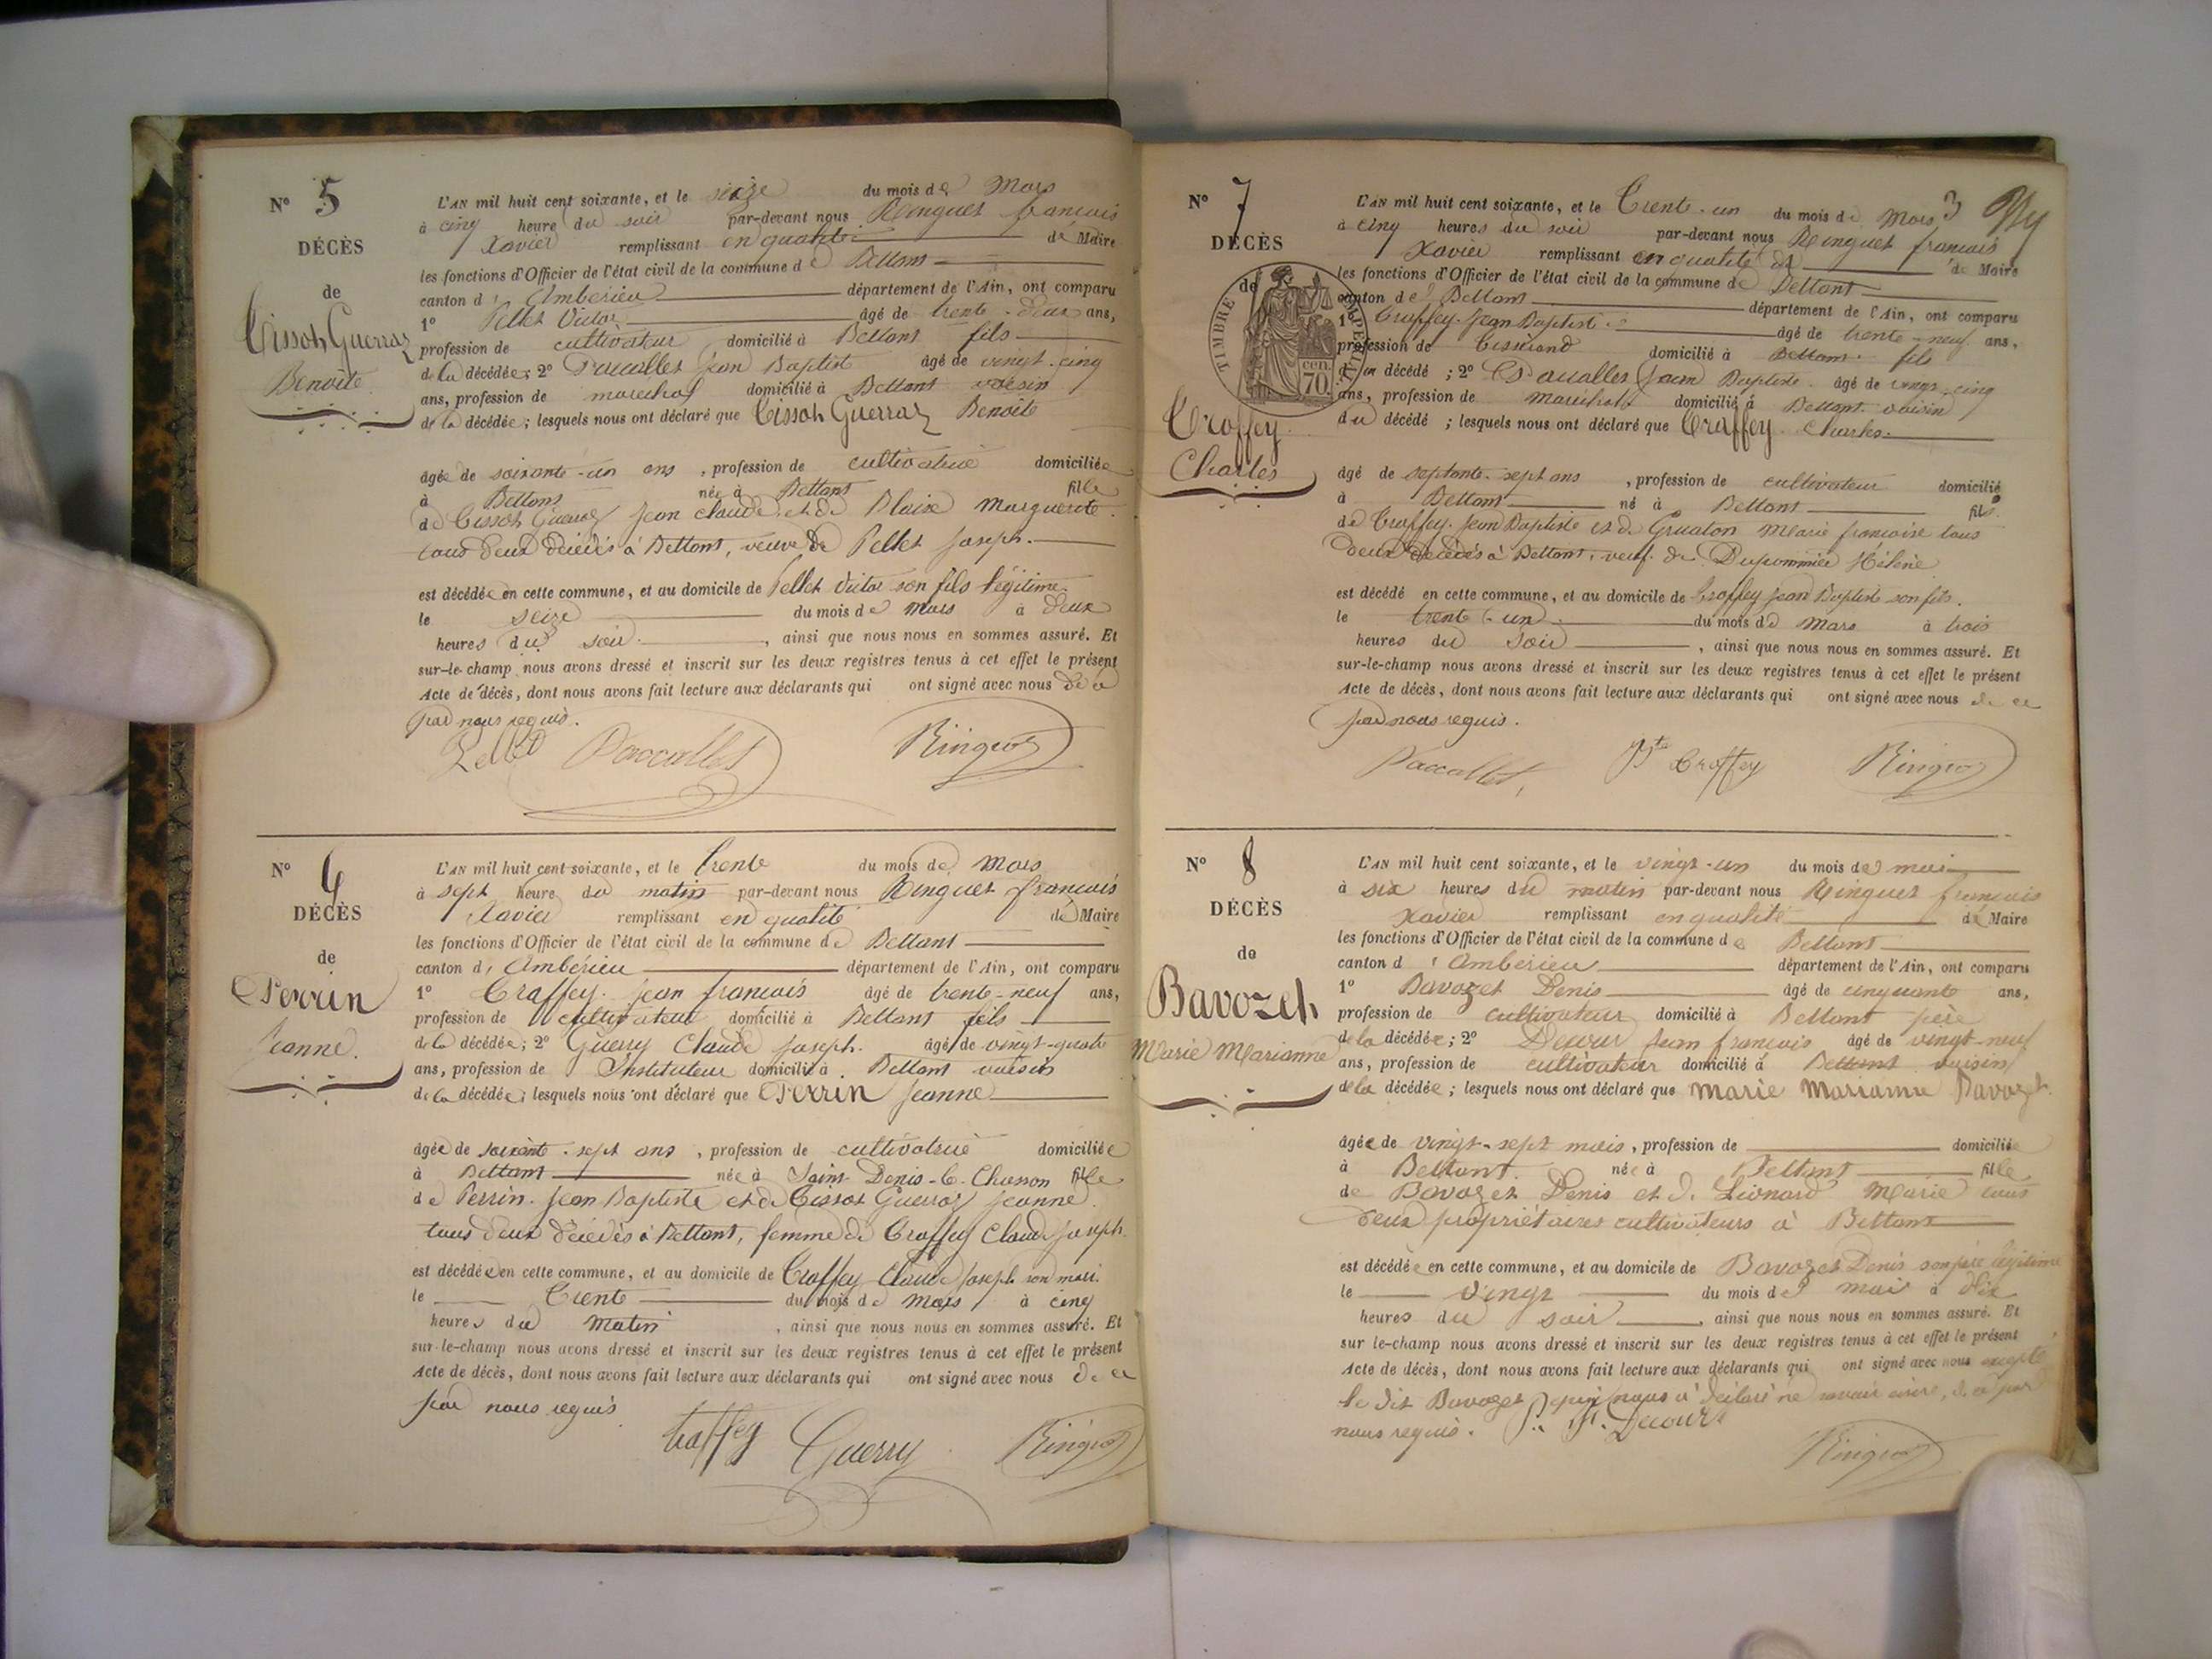 N° 5
DÉCÈS
de
Tissot Guerraz
Benoite
L'AN mil huit cent soixante, et le seize du mois de Mars
à cinq heure du soir par-devant nous Ringuet francois
Xavier remplissant en qualité de Maire
les fonctions d'Officier de l'état civil de la commune de Bettant
canton d'Ambérieu département de l'Ain, ont comparu
1° Pellet Victor âgé de trente-deux ans,
profession de cultivateur domicilié à Bettant fils
de la décédée; 2° Paccallet Jean Baptiste âgé de vingt-cinq
ans, profession de maréchal domicilié à Bettant voisin
de la décédée; lesquels nous ont déclaré que Tissot Guerraz Benoite
âgée de soixante-un ans, profession de cultivatrice domiciliée
à Bettant née à Bettant fille
de Tissot Guerraz Jean Claude et de Blaise Marguerite
tous deux décédés à Bettant, veuve de Pellet Joseph.
est décédée en cette commune, et au domicile de Pellet Victor son fils légitime
le seize du mois de Mars à deux
heures du soir, ainsi que nous nous en sommes assuré. Et
sur-le-champ nous avons dressé et inscrit sur les deux registres tenus à cet effet le présent
Acte de décès, dont nous avons fait lecture aux déclarants qui ont signé avec nous de ce
par nous requis.
Pellet Paccallet Ringuet
N° 6
DÉCÈS
de
Perrin
Jeanne.
L'AN mil huit cent soixante, et le trente du mois de Mars
à sept heure du matin par-devant nous Ringuet francois
Xavier remplissant en qualité de Maire
les fonctions d'Officier de l'état civil de la commune de Bettant
canton d'Ambérieu département de l'Ain, ont comparu
1° Traffey Jean francois âgé de trente-neuf ans,
profession de cultivateur domicilié à Bettant fils
de la décédée; 2° Guerry Claude Joseph. âgé de vingt-quatre
ans, profession de Instituteur domicilié à Bettant voisin
de la décédée; lesquels nous ont déclaré que Perrin Jeanne
âgée de soixante-sept ans, profession de cultivatrice domiciliée
à Bettant née à Saint-Denis-le-Chosson fille
de Perrin Jean Baptiste et de Tissot Guerraz Jeanne.
tous deux décédés à Bettant, femme de Traffey Claude Joseph.
est décédée en cette commune, et au domicile de Traffey Claude Joseph son mari.
le Trente du mois de Mars à cinq
heures du matin, ainsi que nous nous en sommes assuré. Et
sur-le-champ nous avons dressé et inscrit sur les deux registres tenus à cet effet le présent
Acte de décès, dont nous avons fait lecture aux déclarants qui ont signé avec nous de ce
par nous requis
traffey Guerry Ringuet
N° 7
DÉCÈS
de
TIMBRE IMPÉRIAL
70 cen.
Traffey
Charles
3
L'AN mil huit cent soixante, et le Trente-un du mois de Mars
à cinq heures du soir par-devant nous Ringuet francois
Xavier remplissant en qualité de de Maire
les fonctions d'Officier de l'état civil de la commune de Bettant
canton de Bettant département de l'Ain, ont comparu
1° Traffey Jean Baptiste âgé de trente-neuf ans,
profession de Tisserand domicilié à Bettant fils
du décédé; 2° Paccallet Jean Baptiste. âgé de vingt-cinq
ans, profession de maréchal domicilié à Bettant voisin
du décédé; lesquels nous ont déclaré que Traffey Charles.
âgé de septante-sept ans, profession de cultivateur domicilié
à Bettant né à Bettant fils
de Traffey Jean Baptiste et de Gruaton Marie francoise tous
deux décédés à Bettant, veuf de Dupommier Hélène
est décédé en cette commune, et au domicile de traffey Jean Baptiste son fils.
le trente-un du mois de Mars à trois
heures du soir, ainsi que nous nous en sommes assuré. Et
sur-le-champ nous avons dressé et inscrit sur les deux registres tenus à cet effet le présent
Acte de décès, dont nous avons fait lecture aux déclarants qui ont signé avec nous de ce
par nous requis.
Paccallet, Bte Traffey Ringuet
N° 8
DÉCÈS
de
Bavozet
Marie Marianne
L'AN mil huit cent soixante, et le vingt-un du mois de mai
à six heures du matin par-devant nous Ringuet francois
Xavier remplissant en qualité de Maire
les fonctions d'Officier de l'état civil de la commune de Bettant
canton d'Ambérieu département de l'Ain, ont comparu
1° Bavozet Denis âgé de cinquante ans,
profession de cultivateur domicilié à Bettant père
de la décédée; 2° Decour Jean francois âgé de vingt-neuf
ans, profession de cultivateur domicilié à Bettant voisin
de la décédée; lesquels nous ont déclaré que Marie Marianne Bavozet
âgée de vingt-sept mois, profession de domiciliée
à Bettant. née à Bettant fille
de Bavozet Denis et de Lionard Marie tous
deux propriétaires cultivateurs à Bettant
est décédée en cette commune, et au domicile de Bavozet Denis son père légitime
le vingt du mois de mai à dix
heures du soir, ainsi que nous nous en sommes assuré. Et
sur le-champ nous avons dressé et inscrit sur les deux registres tenus à cet effet le présent
Acte de décès, dont nous avons fait lecture aux déclarants qui ont signé avec nous excepté
le dit Bavozet qui nous a déclaré ne savoir écrire, de ce par
nous requis. J. f. Decour
Ringuet